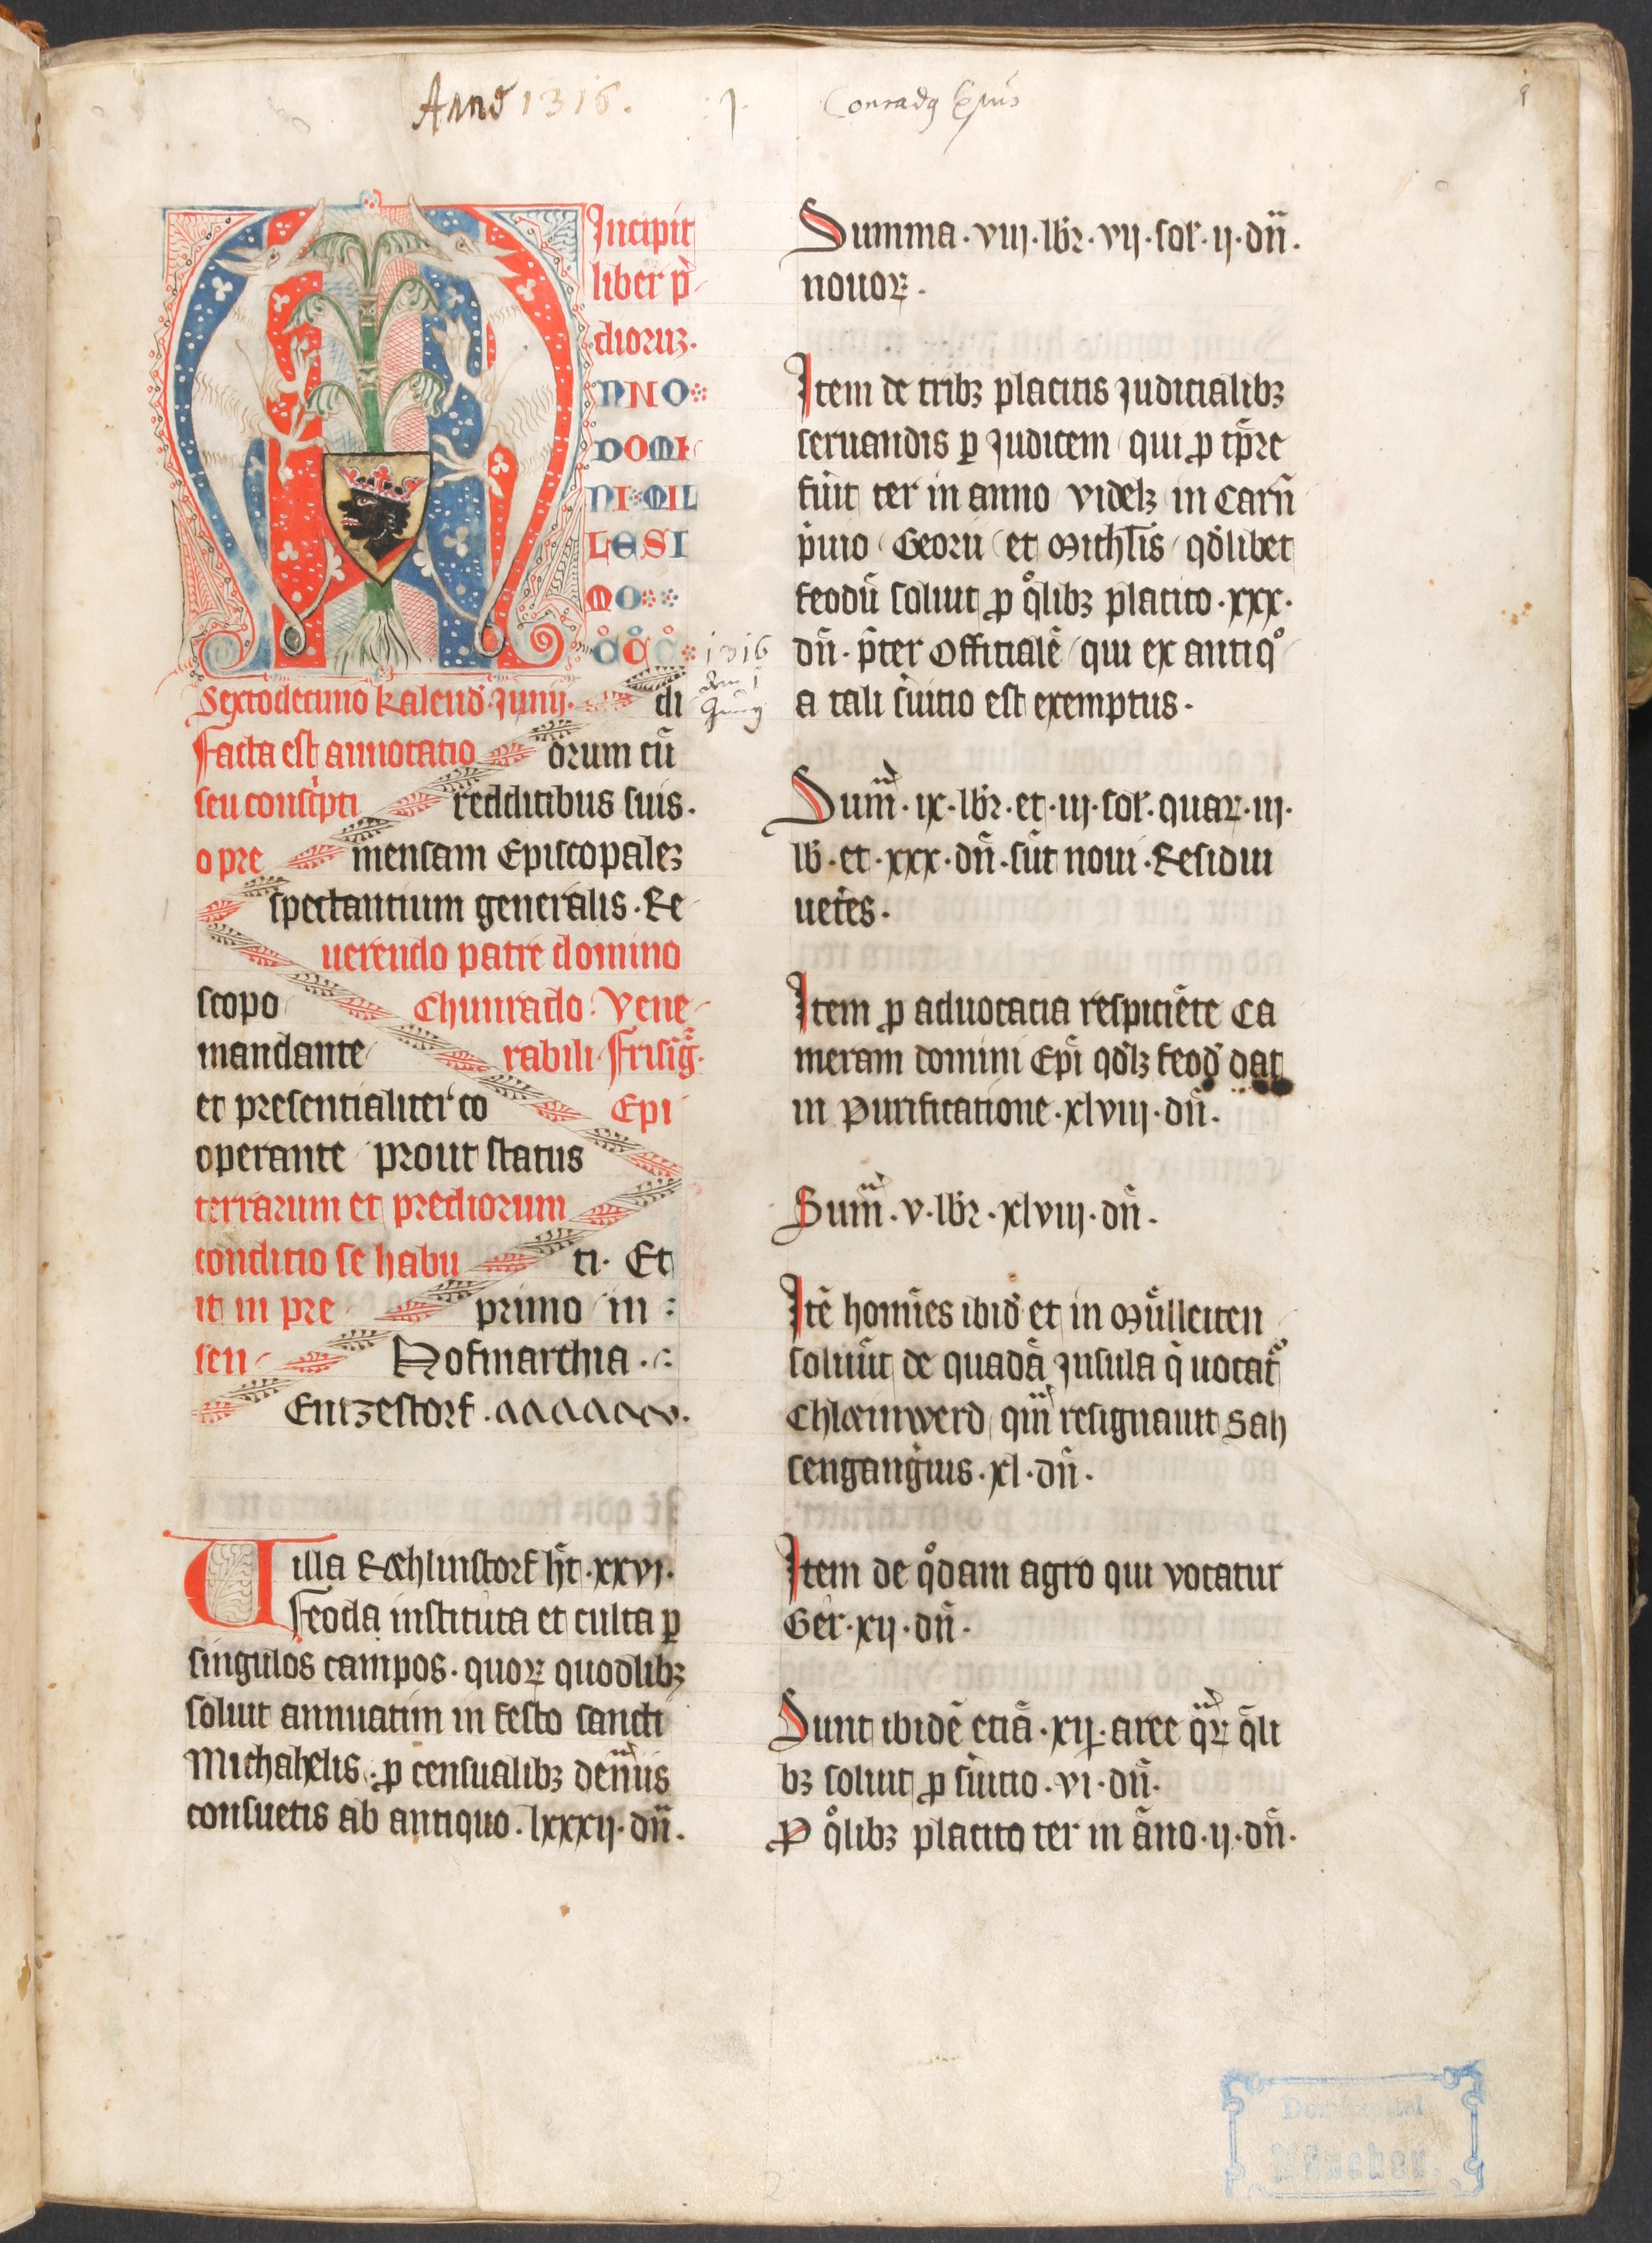 Anno 1316.
Conradꝯ Ep̄us
Incipit
liber p̄
dioruꝫ.
NNO
DOMI
NI MIL
LESI
MO
CCC
1316
Sextodecimo kalend̾. Junij. di
Facta est annotatio orum cū
seu conscͥpti redditibus suis.
o pre mensam Episcopaleꝫ
spectantium generalis. Re
uerendo patre domino
scopo Chunrado. Vene
mandante rabili. Frisīg.
et presentialiter co Epi
operante prout status
terrarum et prediorum
conditio se habu ti. Et
it in pre primo in :
sen Hofmarchia .
Entzestorf.
Villa Rœhlinstorf hꝫt. xxvi.
Feoda instituta et culta ꝑ
singulos campos. quoꝝ quodlibꝫ
soluit annuatim in festo sancti
Michahelis. ꝓ censualibꝫ den̄iis
consuetis ab antiquo. lxxxij. dn̄.
Summa. viij. lbꝝ. vij. sol. ij. dn̄.
nouoꝝ.
Item de tribꝫ placitis Juditialibꝫ
seruandis ꝑ Juditem qui ꝓ tp̄re
fūit ter in anno videlꝫ in Carn̄
pͥuio Georii et Mich̄lis qd̾libet
feodū soluit ꝓ qͦlibꝫ placito. xxx.
dn̄. p̄ter Offitialē qui ex antiqͦ
a tali s̄uitio est exemptus.
Sum̄. ix. lbꝝ. et. iij. sol. quaꝝ. iij.
lb̄. et. xxx. dn̄. sūt noui. Residui
uet̾es.
Item ꝓ aduocacia respiciēte Ca
meram domini Ep̄i qd̾lꝫ feod̾ dat
in Purificatione. xlviij. dn̄.
Sum̄. v. lbꝝ. xlviij. dn̄.
Itē homīes ibid̾ et in Mu̾lleiten
soluūt de quadā Insula q̄ uocat᷑
Chlœinwerd, qm̄ resignauit Sah
sengang̾ius. xl. dn̄.
Item de qͦdam agro qui vocatur
Ger. xij. dn̄.
Sunt ibidē etiā. xij. aree qꝝ q̄li
bꝫ soluit ꝓ s̄uitio. vi. dn̄.
Ꝓ qͦlibꝫ placito ter in āno. ij. dn̄.
Domkapitel
München.